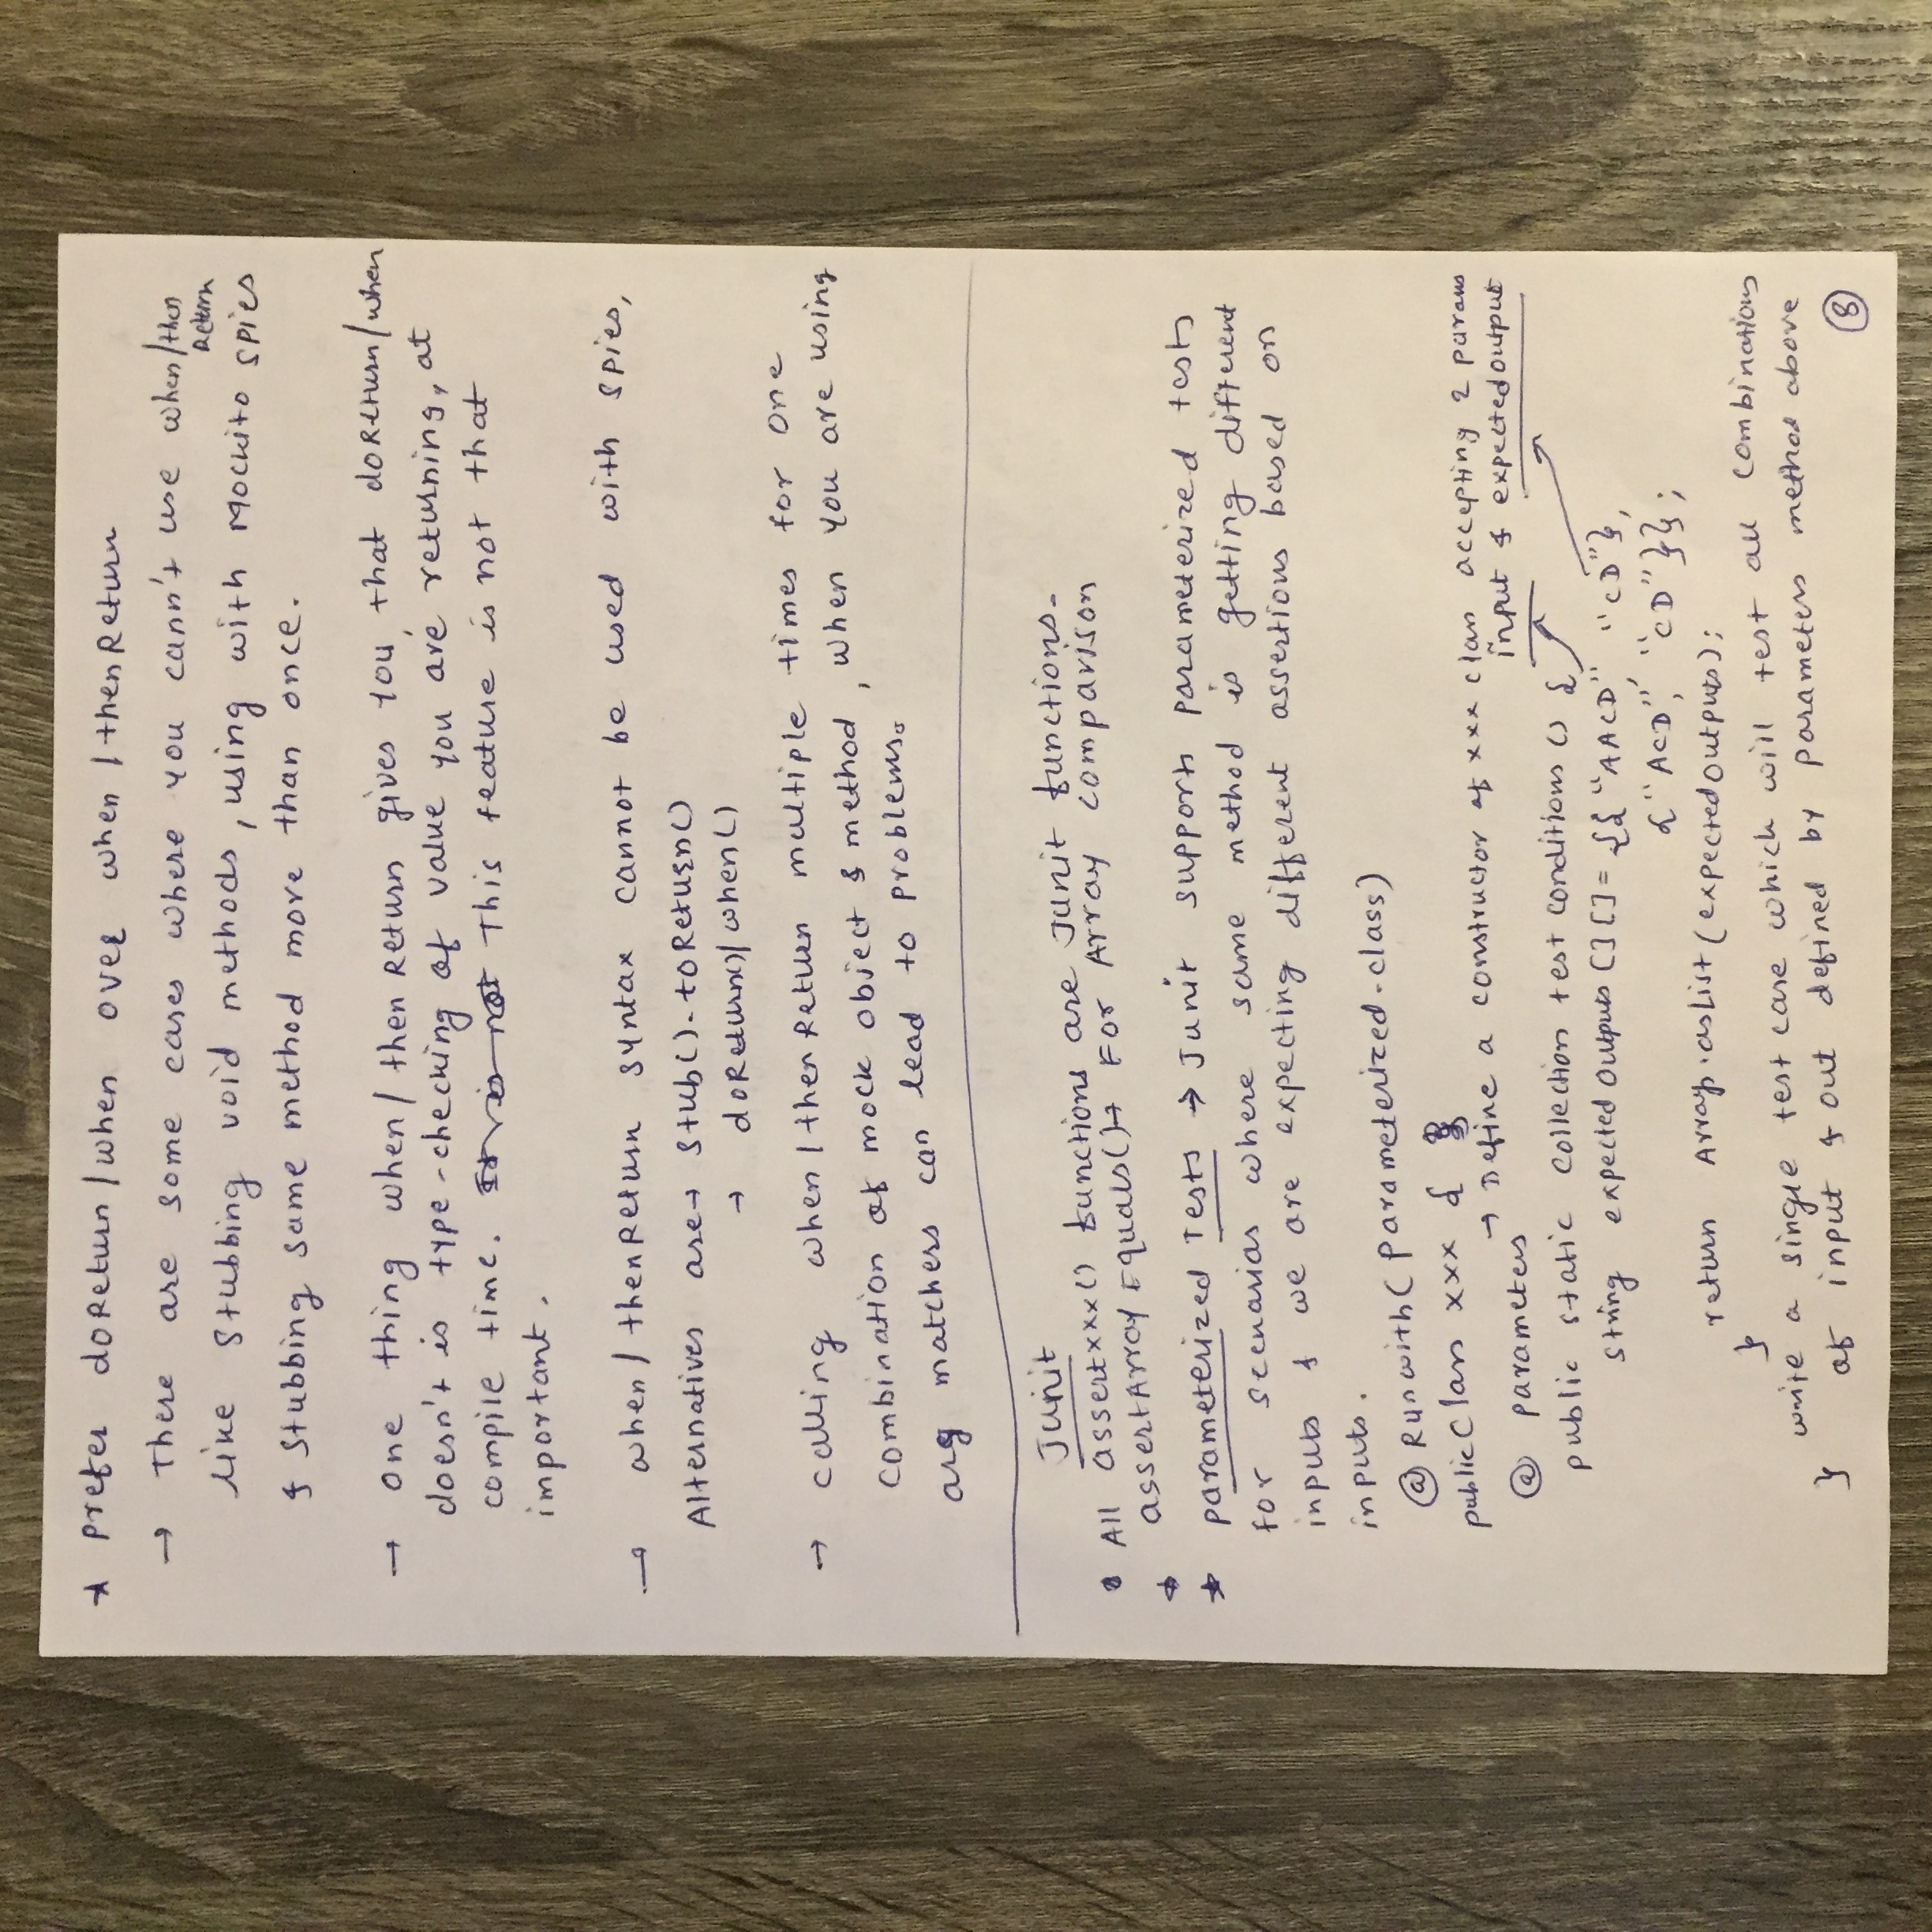 * Prefer doReturn/when over when/thenReturn
→ There are some cases where you cann't use when/then
Return
like Stubbing void methods, using with Mockito spies
& Stubbing same method more than once.
→ One thing when/thenReturn gives you, that doReturn/when
doesn't is type-checking of value you are returning, at
compile time. It is not This feature is not that
important.
→ when/thenReturn syntax cannot be used with spies,
Alternatives are → Stub().toReturn()
→ doReturn()/when()
→ calling when/thenReturn multiple times for one
combination of mock object & method, when you are using
arg matchers can lead to problems.
Junit
* All assertxxx() functions are Junit functions.
* assertArrayEquals() → For Array comparison
* Parameterized Tests → Junit supports parameterized tests
for scenarios where same method is getting different
inputs & we are expecting different assertions based on
inputs.
@ Runwith(Parameterized.class)
public class xxx {
→ Define a constructor of xxx class accepting 2 params
input & expectedoutput
@ parameters
public static collection test conditions () {
string expected outputs [][] = {{"AACD", "CD"},
{"ACD", "CD"}};
return Arrays.asList(expectedoutputs);
}
write a single test case which will test all combinations
} of input & out defined by Parameters method above
8